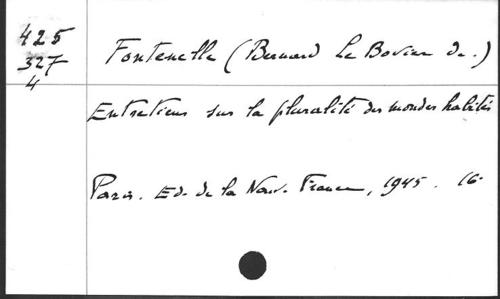 425
327
4
Fontenelle (Bernard Le Bovier de.)
Entretiens sur la pluralité des mondes habités
Paris. Ed. de la Nouv. France, 1945. 16º